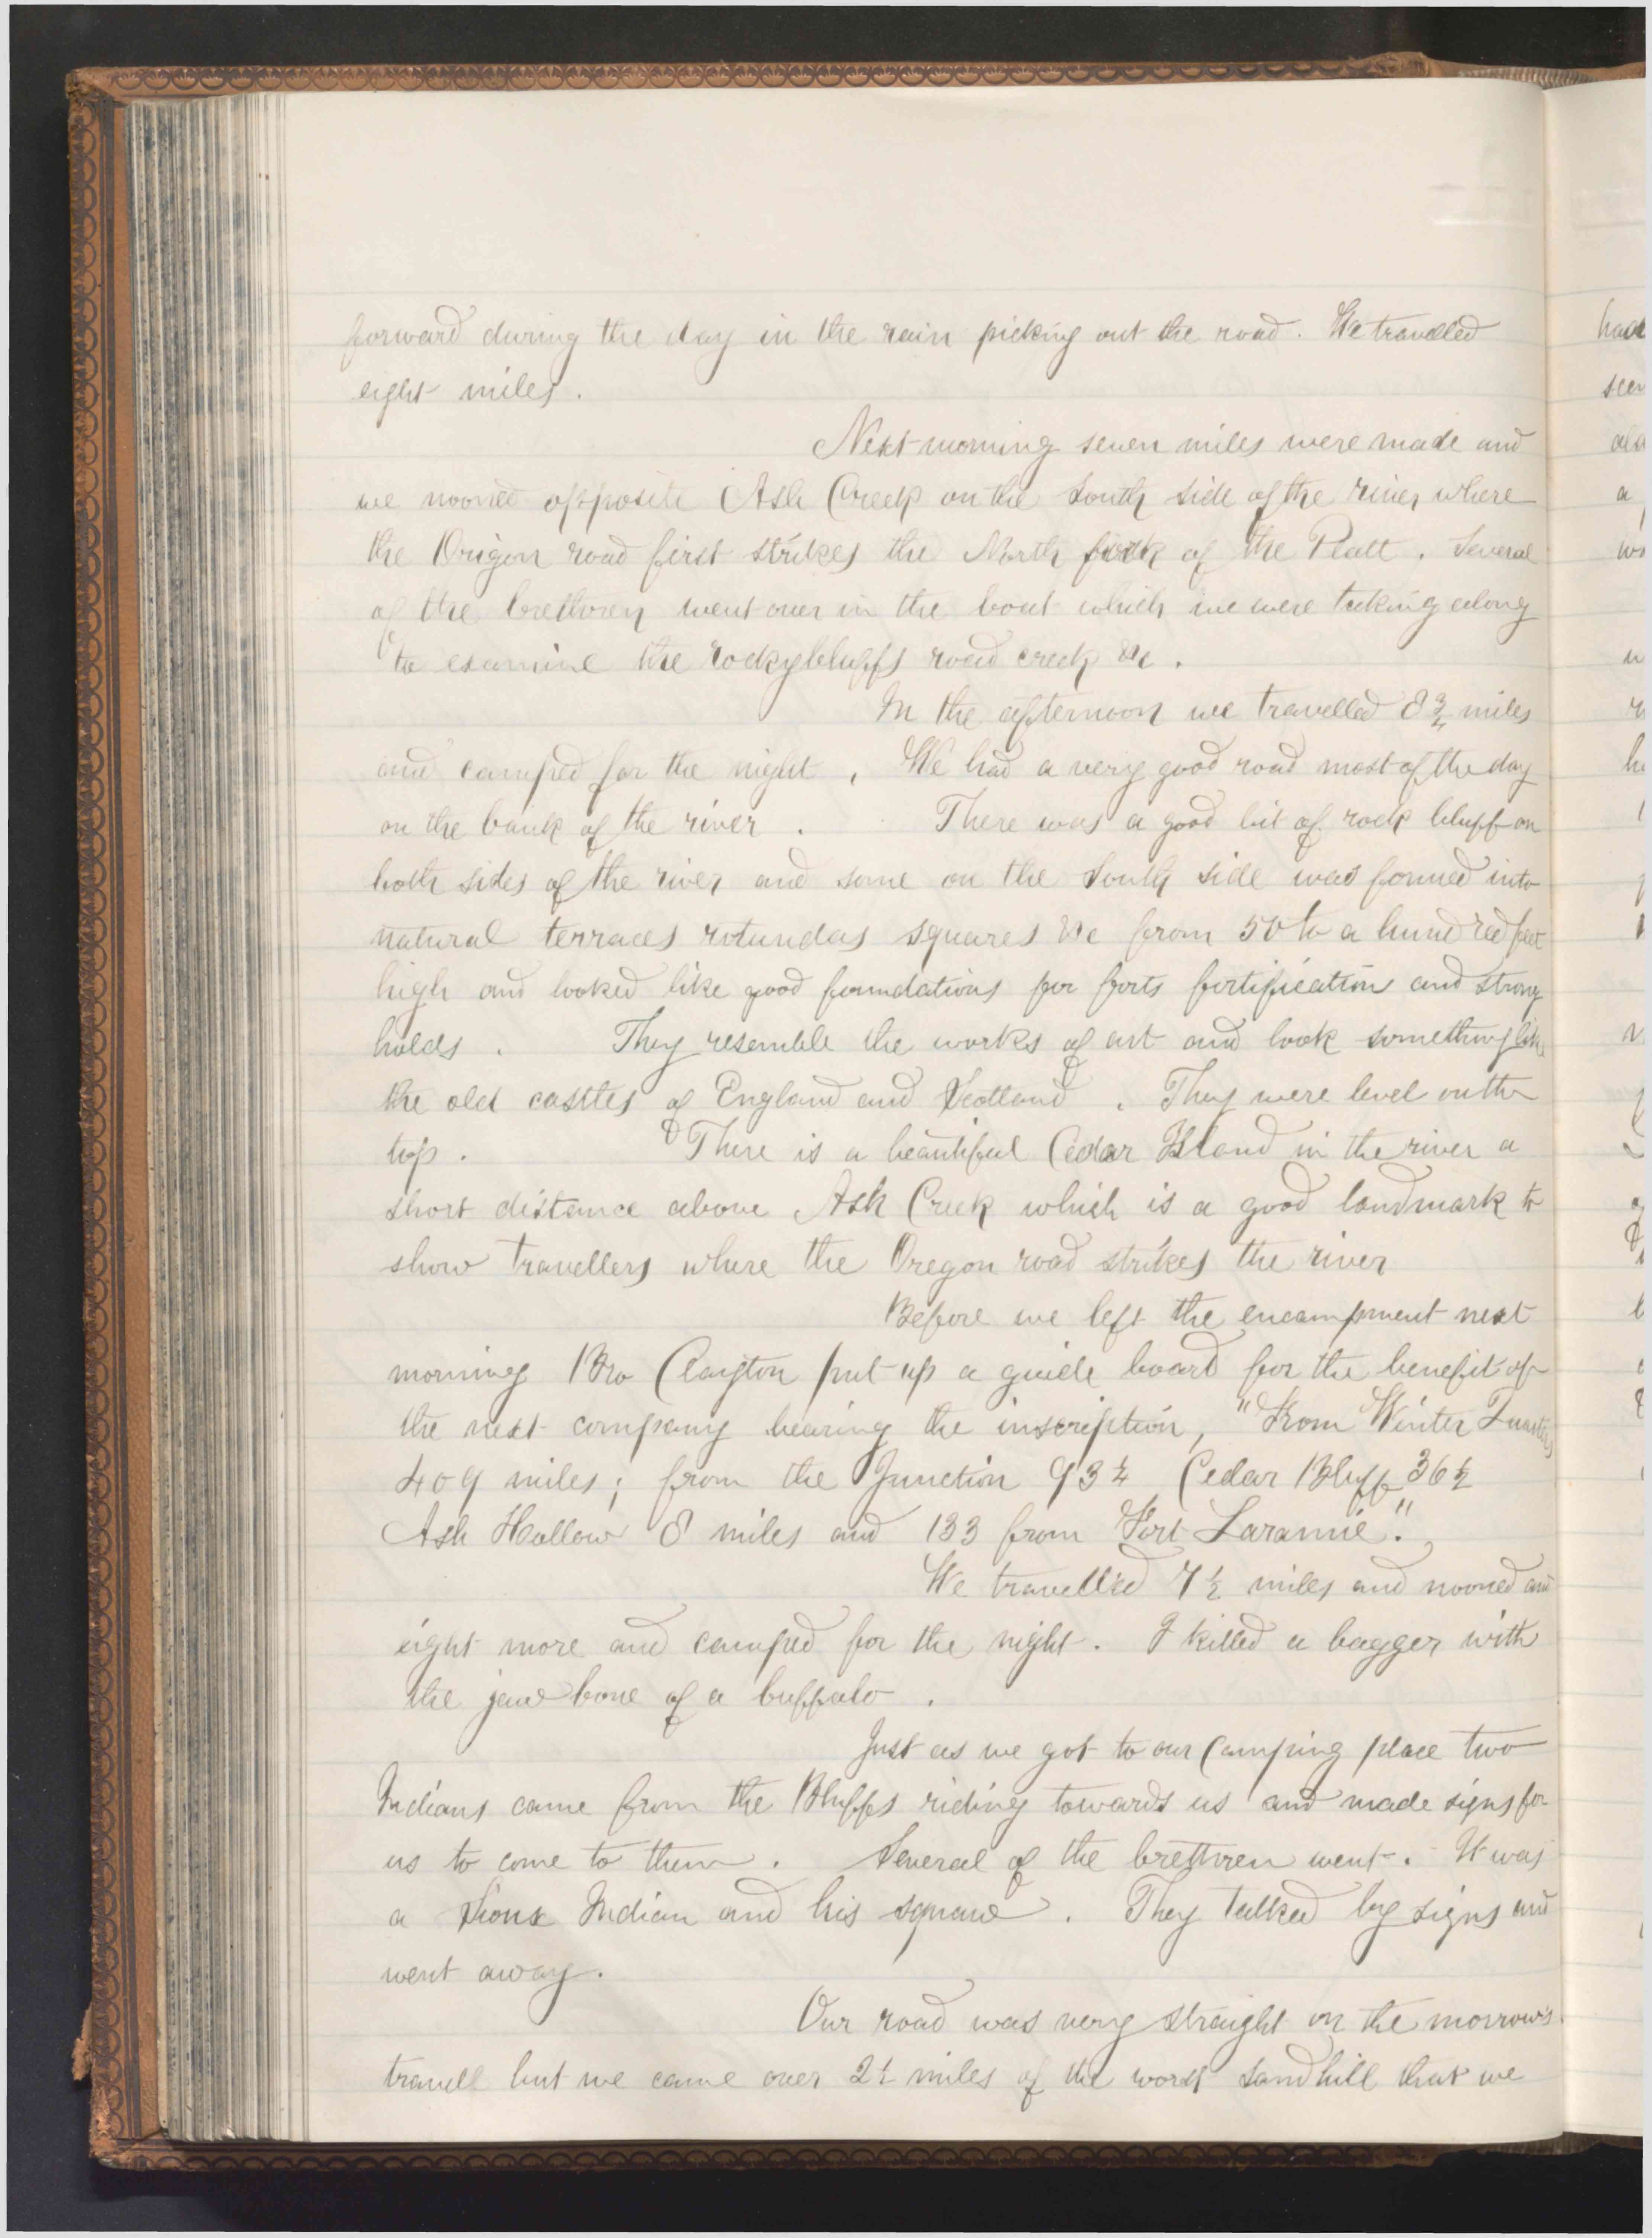 forward during the day in the rain picking out the road. We travelled
eight miles.
Next morning seven miles were made and
we nooned opposite Ash Creek on the South side of the river where
the Origon road first strikes the North fork of the Platt. Several
of the brethren went over in the boat which we were taking along
to examine the rocky bluffs road creek &c.
In the afternoon we travelled 8 3/4 miles
and camped for the night. We had a very good road most of the day
on the bank of the river. There was a good bit of rock bluff on
both sides of the river and some on the South side was formed into
natural terraces rotundas squares &c from 50 to a hundred feet
high and looked like good foundations for forts fortification and strong
holds. They resemble the works of art and look something like
the old castles of England and Scotland. They were level on the
top. There is a beautiful Cedar Island in the river a
short distance above Ash Creek which is a good landmark to
show travellers where the Oregon road strikes the river
Before we left the encampment next
morning Bro Clayton put up a guide board for the benefit of
the next company bearing the inscription, "From Winter Quarters
409 miles; from the Junction 93 1/4 Cedar Bluff 36 1/2
Ash Hollow 8 miles and 133 from Fort Laramie".
We travelled 7 1/2 miles and nooned and
eight more and camped for the night. I killed a bagger with
the jaw bone of a buffalo.
Just as we got to our Camping place two
Indians came from the Bluffs riding towards us and made signs for
us to come to them. Several of the brethren went. It was
a Sioux Indian and his squaw. They talked by signs and
went away.
Our road was very straight on the morrow's
travell but we came over 2 1/2 miles of the worst sand hill that we